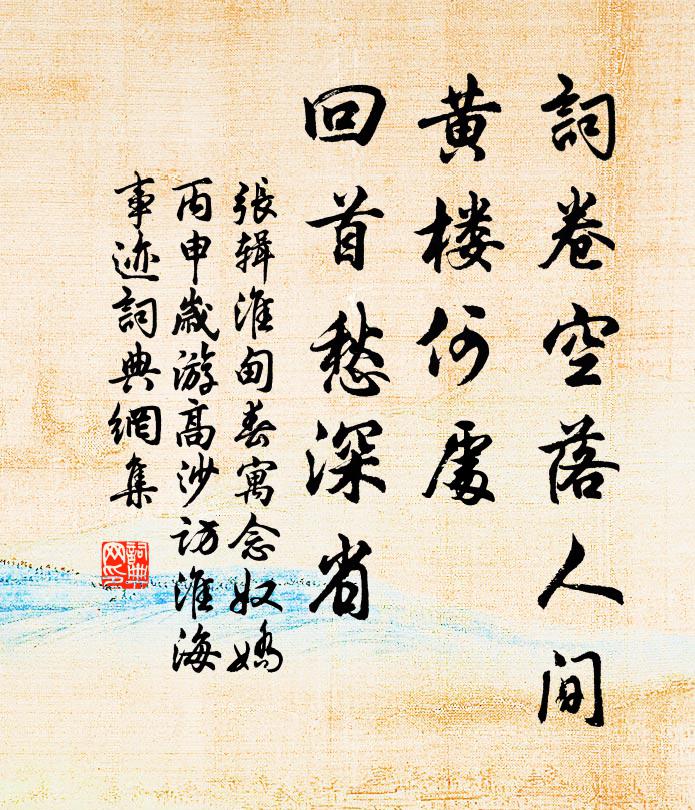 詞卷空落人间
黄楼何處
回首愁深省
張辑淮甸春寓念奴嬌
丙申歲游高沙访淮海
事迹詞典網集
詞典网印